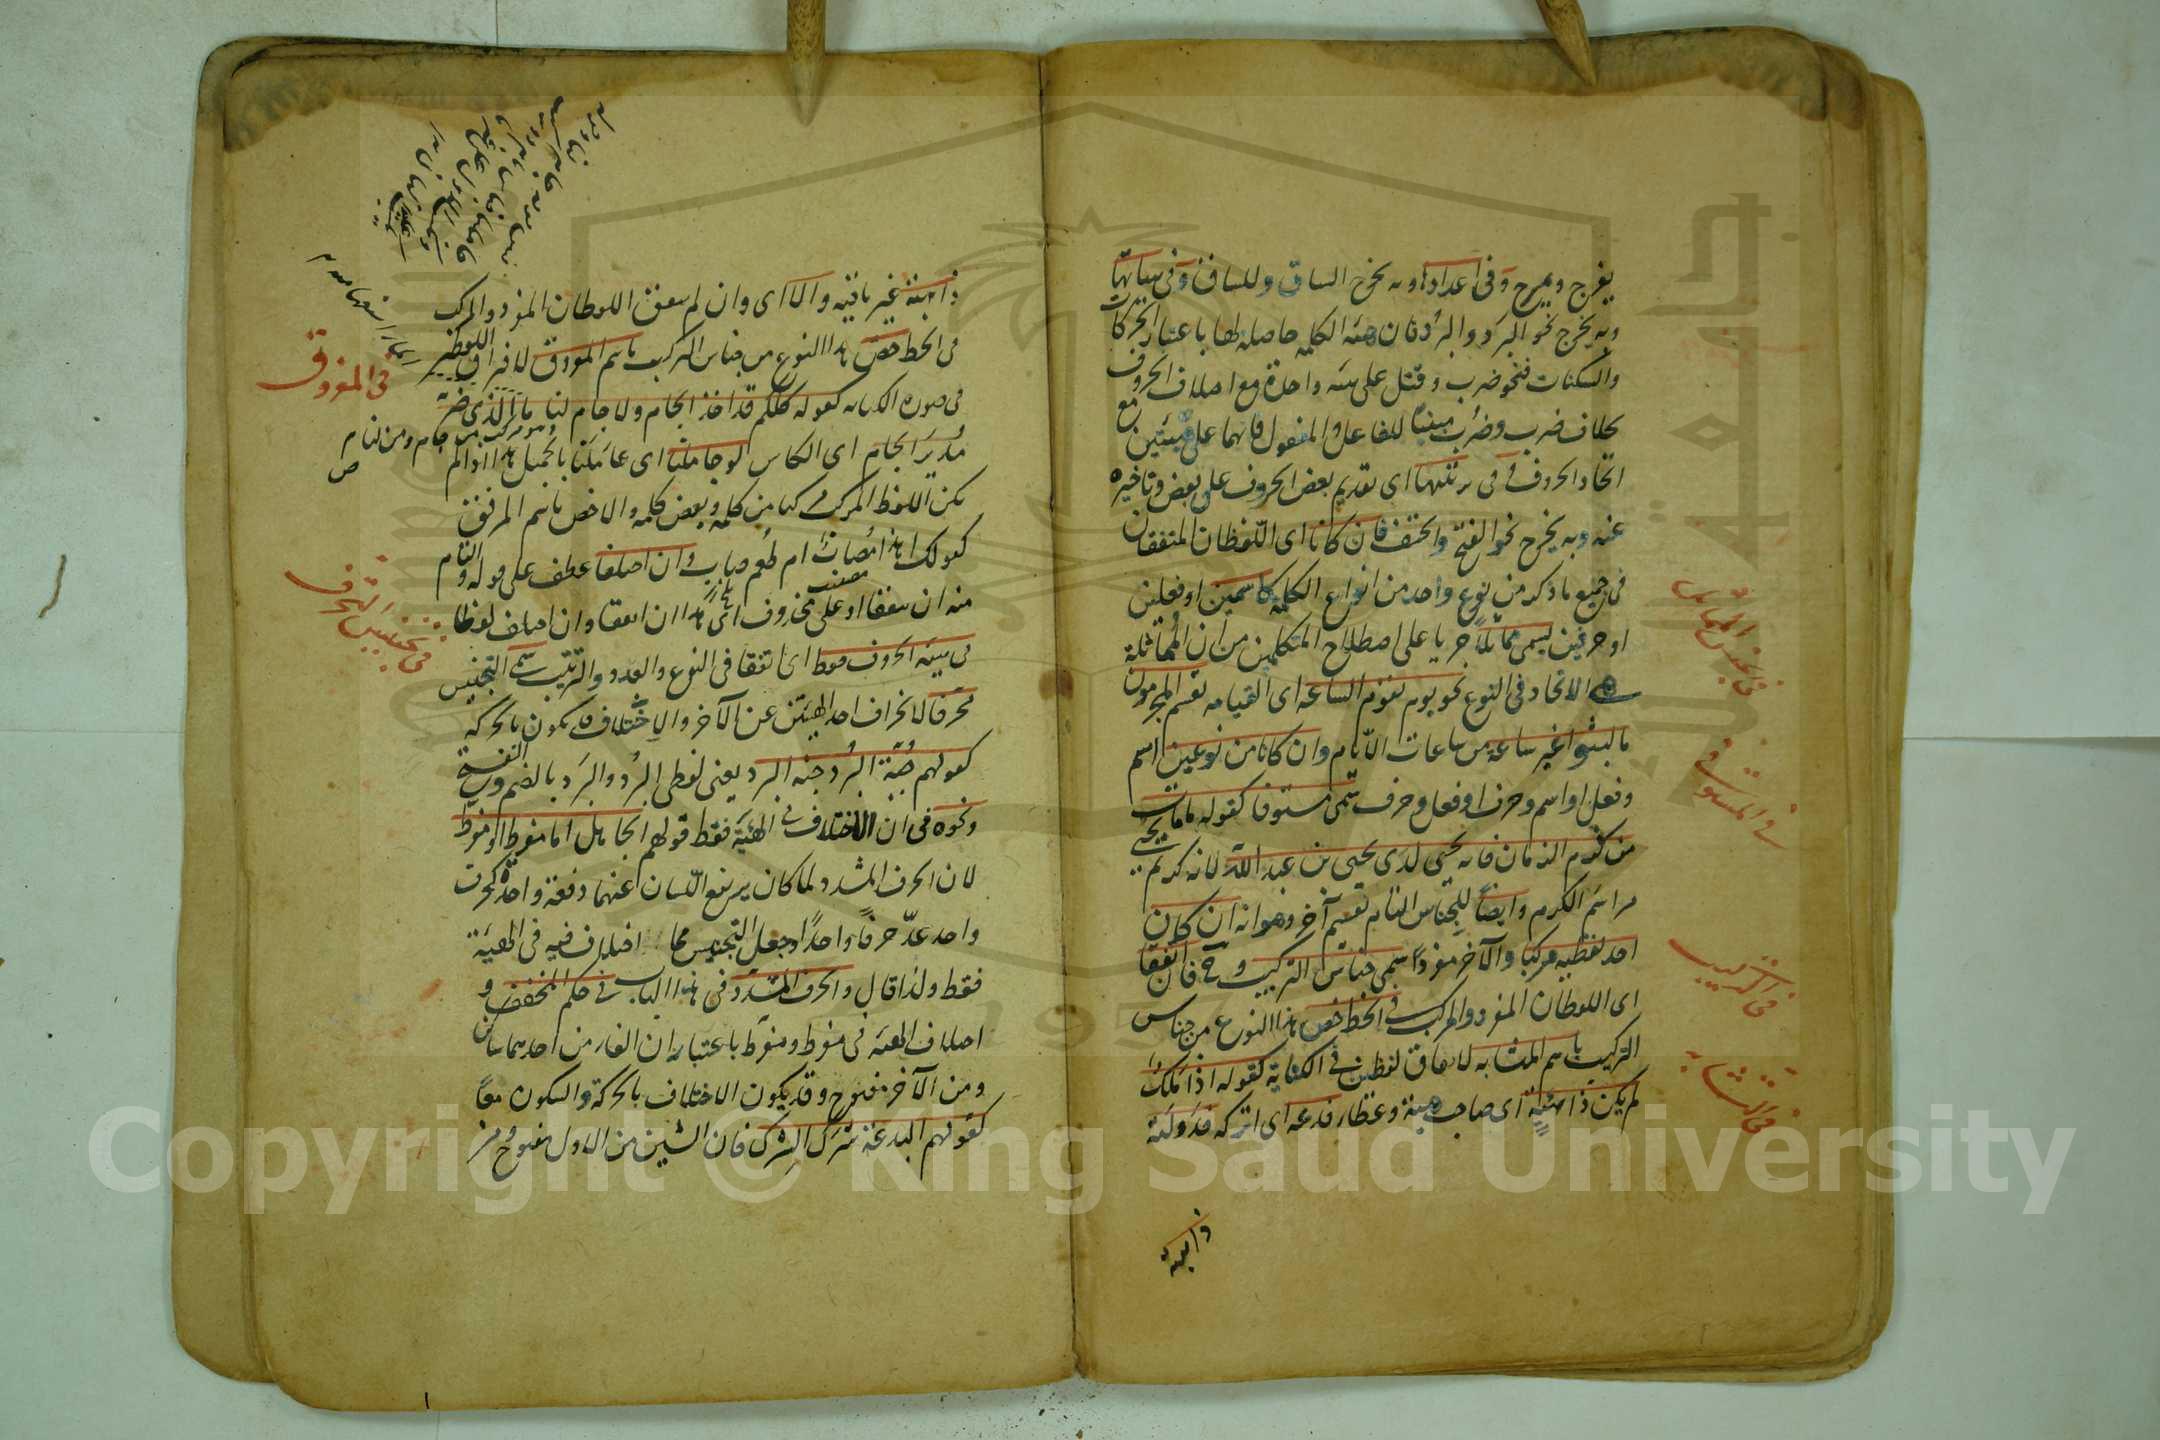 يفرح ويمرح وفي اعدادها وبه يخرج الساق والمساق وفي هيآتها
وبه يخرج نحو البَرد والبُرد فان هيئة الكلمة حاصلة لها باعتبار الحركات
والسكنات فنحو ضرب وقتل على هيئة واحدة مع اختلاف الحروف
بخلاف ضرب وضُرب مبنيا للفاعل والمفعول فانهما على هيئتين مع
اتحاد الحروف وفي ترتيبها اى تقديم بعض الحروف على بعض وتاخيره
عنه وبه يخرج نحو الفتح والحتف فان كانا اى اللفظان المتفقان
في جميع ما ذكر من نوع واحد من انواع الكلمة كاسمين او فعلين
او حرفين يسمى مماثلاً جريا على اصطلاح المتكلمين من ان المماثلة
هي الاتحاد في النوع نحو يوم تقوم الساعة اى القيامة يقسم المجرمون
ما لبثوا غير ساعة من ساعات الايام وان كانا من نوعين اسم
وفعل او اسم وحرف او فعل وحرف سمى مستوفا كقوله ما مات
من كرم الزمان فانه يحيى لدى يحيى بن عبد الله لانه كريم يحيى
مراسم الكرم وايضاً للجناس التام تقسيم آخر وهو انه ان كان
احد لفظيه مركبا والآخر مفردًا سمى جناس التركيب وح فان اتفقا
اى اللفظان المفرد والمركب في الخط خص هذا النوع من جناس
التركيب باسم المتشابه لاتفاق لفظين في الكتابة كقوله اذا ملك
لم يكن ذا هبة اى صاحب هبة وعطا فدعه اى اتركه فدولته
ذاهبة
في تجنيس المماثل
في المستوفى
في التركيب
في المتشابه
ذاهبة غير باقية والا اى وان لم يتفق اللفظان المفرد والمركب
في الخط خص هذا النوع من جناس التركيب باسم المفروق لافتراق اللفظين
في صورة الكتابة كقوله كلكم قد اخذ الجام ولا جام لنا ما الذي ضر
مُديرَ الجام اى الكاس لو جاملنا اى عاملنا بالجميل هذا اذا لم
يكن اللفظ المركب مركبا من كلمة وبعض كلمة والا خص باسم المرفق
كقولك اهذا مُصاب ام طعم صاب وان اختلفا عطف على قوله والتام
منه ان يتفقا او على محذوف اى هذا ان اتفقا وان اختلف لفظا
في هيئة الحروف فقط اى اتفقا في النوع والعدد والترتيب سمى التجنيس
محرفا لانحراف احد الهيئتين عن الآخر والاختلاف قد يكون بالحركة
كقولهم جُبّة البُرد جنة البرد يعنى لفظى البُرد والبَرد بالضم والفتح
ونحوه في ان الاختلاف في الهيئة فقط قولهم الجاهل اما مفرط او مفرّط
لان الحرف المشدد لما كان يرتفع اللسان عنهما دفعة واحدة كحرف
واحد عدّ حرفًا واحدًا وجعل التجنيس مما اختلاف فيه في الهيئة
فقط ولذا قال والحرف المشدد في هذا الباب في حكم المخفف و
اختلاف الهيئة في مفرط ومفرّط باعتبار ان الفاء من احدهما ساكن
ومن الآخر مفتوح وقد يكون الاختلاف بالحركة والسكون معًا
كقولهم البدعة شرَك الشِرك فان الشين من الاول مفتوح ومن
في المفروق
في تجنيس المحرف
Copyright © King Saud University
1957